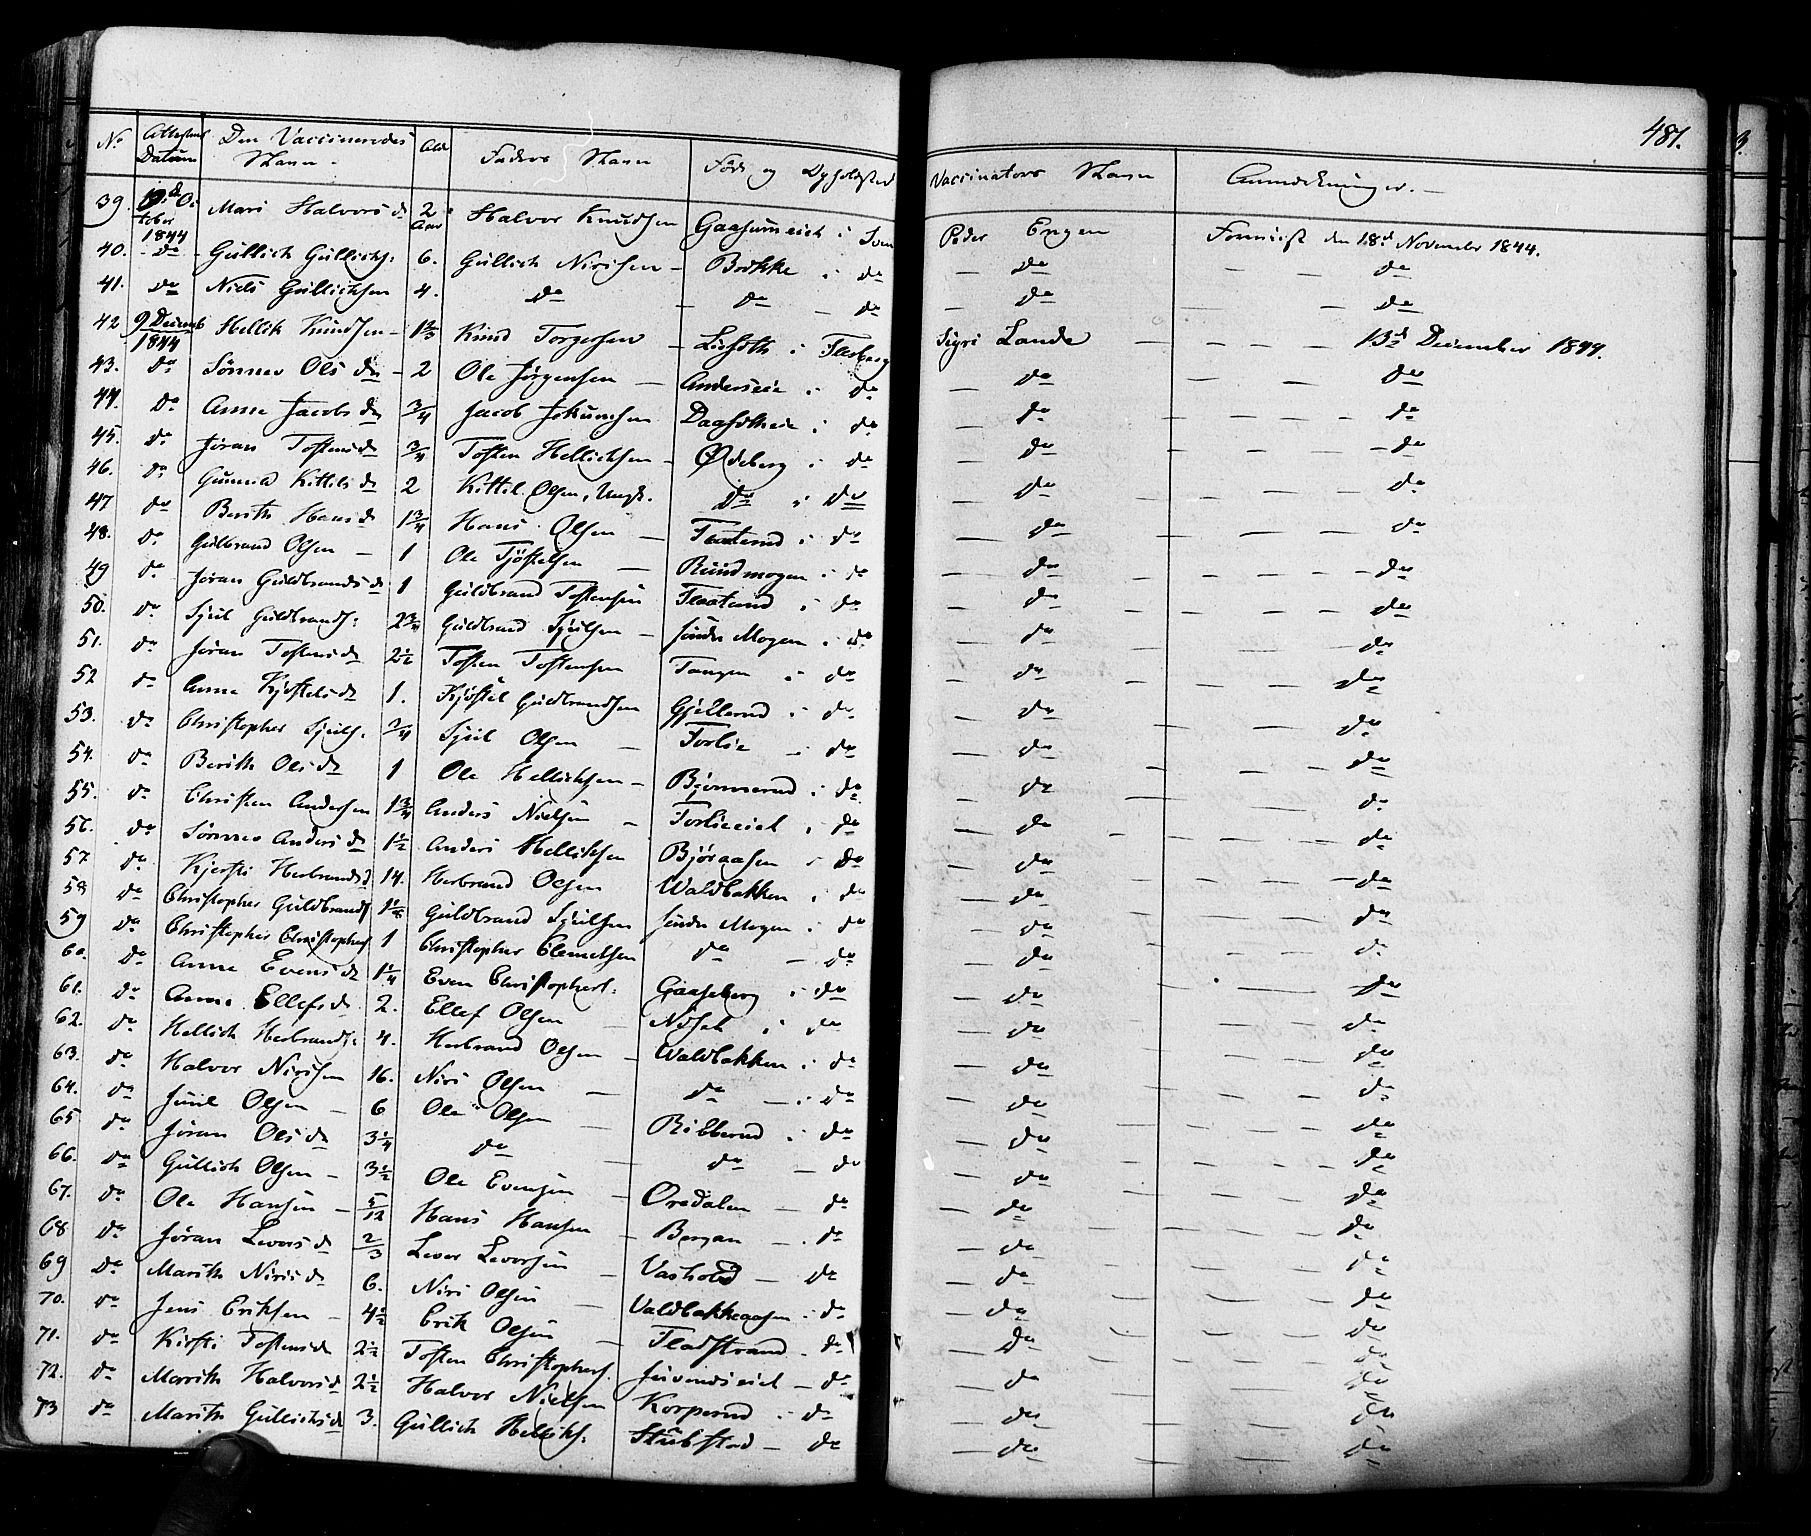 481.
No Attestens Datum Den Vaccineredes Navn. Ald Faders Navn Føde og Opholdsted Vaccinators Navn Anmærkninger.
39. October 1844 Mari Halvorsd 2 Aar Halvor Knudsen Gaasumeiet i Svene Peder Engen Fornviist den 18d November 1844.
40. do Gullich Gullichs: 6. Gullich Nirisen Brekke i do do do
41. do Niels Gullichsen 4. do do do do do
42 9 Decemb 1844 Hellik Knudsen 1 2/3 Knud Torgersen i Flesberg Sigri Lande 13d December 1844.
43. do Sønnev Olsdr 2 Ole Jørgensen Anderseie i do do do
44. do Anne Jacobsdr 3/4 Jacob i do do do
45. do Jøran Tostensdr 3/4 Tosten Hellichsen Ødeberg i do do do
46. do Gunnild Kittelsdr 2 Kittel Olsen, Ungk. do i do do do
47 do Berith Hansd 1 3/4 Hans Olsen Flaaterud i do do do
48. do Guldbrand Olsen 1 Ole Tjøstelsen Rundmogen i do do do
49 do Jøran Guldbrandsd 1 Guldbrand Tostensen Flaaterud i do do do
50. do Sjul Guldbrands: 2 3/4 Guldbrand Sjulsen Søndre Mogen i do do do
51. do Jøran Tostensdr 2 1/2 Tosten Tostensen Tangen i do do do
52 do Anne Kjøstelsdr 1. Kjøstel Guldbrandsen Gjellerud i do do do
53. do Christopher Sjuls: 3/4 Sjul Olsen Forlie i do do do
54. do Berith Olsdr 1 Ole Hellichsen Bjønnerud i do do do
55. do Christen Andersen 1 3/4 Anders Nielsen Forlieeiet i do do do
56. do Sønnev Andersdr 1 1/2 Anders Hellichsen Bjøraasen i do do do
57 do Kjersti Herbrandsd 14. Herbrand Olsen Waldbakken i do do do
58 do Christopher Guldbrands 1 1/2 Guldbrand Sjulsen Søndre Mogen i do do do
59 do Christopher Christophers 1 Christopher Clemetsen do do do do
60. do Anne Evensdr 1 1/4 Even Christophers: Gaaseberg i do do do
61. do Anne Ellefsdr 2. Ellef Olsen i do do do
62. do Hellich Herbrands: 4. Herbrand Olsen Waldbakken i do do do
63. do Halvor Nirisen 16. Niri Olsen do i do do do
64. do Juul Olsen 6 Ole Olsen Ribberud i do do do
65 do Jøran Olsdr 3 1/4 do do do do do
66. do Gullich Olsen 3 1/2 Ole Evensen Øvedalen do do do
67. do Ole Hansen 5/12 Hans Hansen Bergan do do do
68 do Jøran Leversdr 2/3 Lever Leversen Vashovd do do do
69 do Marith Nirisdr 6. Niri Olsen Valdbakkeaasen do do do
70. do Jens Eriksen 4 1/2 Erik Olsen Fladstrand do do do
71. do Kirsti Tostensdr 2 1/2 Tosten Christophers. do do do
72. do Marith Halvorsd 2 1/2 Halvor Nielsen Korperud i do do do
73 do Marith Gullichsdr 3. Gullich Helliks: Stubstad do do do